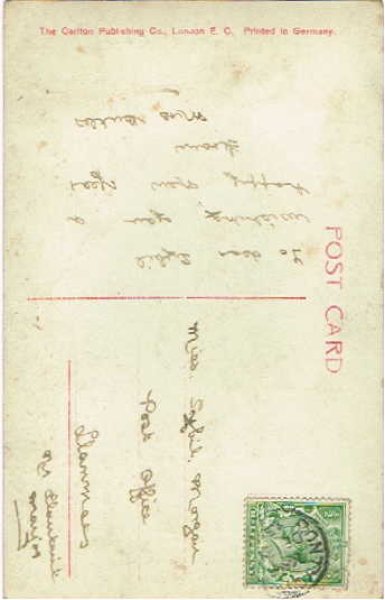 The Carlton Publishing Co., London E. C. Printed in Germany.
POST CARD
To dear Sybil
wishing you a
happy New Year
from
Mrs
Miss. Sybil. Morgan
Post Office
Llanmaes
Nr Llantwit
Major